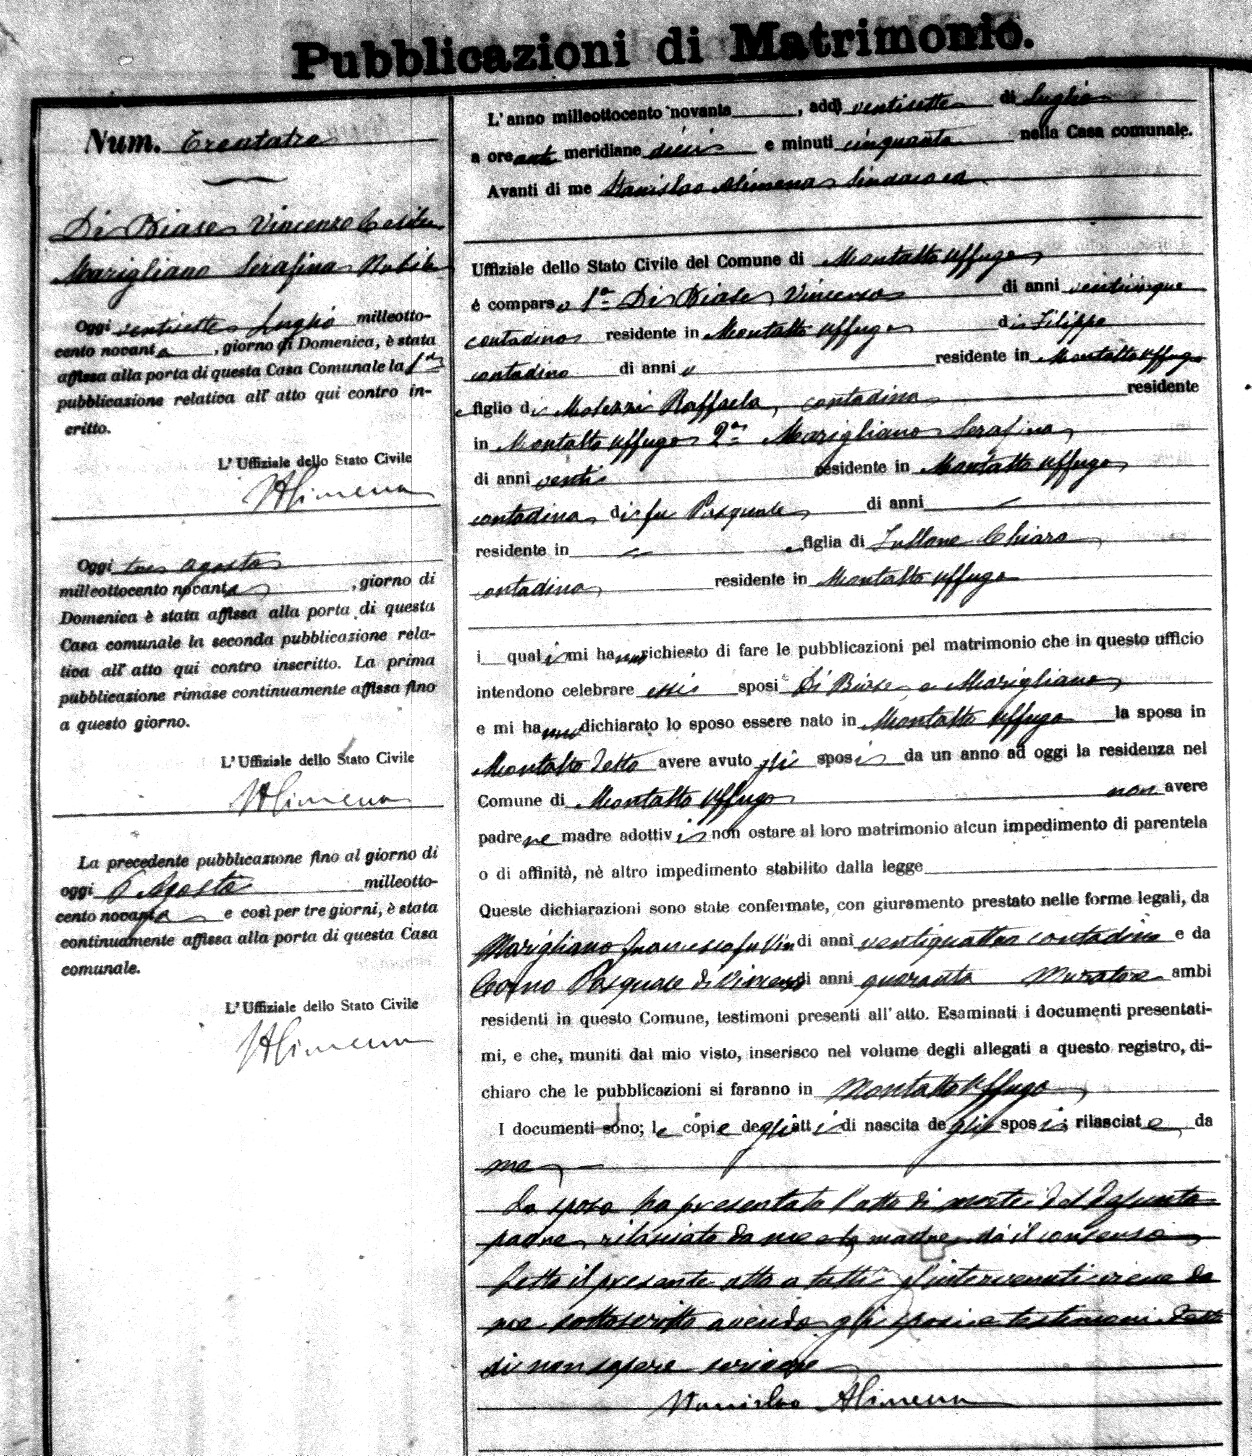 Pubblicazioni di Matrimonio.
Num. Trentatre
Di Biase Vincenzo Celibe
Marigliano Serafina Nubile
Oggi ventisette Luglio milleotto-
cento novanta, giorno di Domenica, è stata
affissa alla porta di questa Casa Comunale la 1a
pubblicazione relativa all' atto qui contro in-
critto.
L' Uffiziale dello Stato Civile
SAlimena
Oggi tre agosto
milleottocento novanta, giorno di
Domenica è stata affissa alla porta di questa
Casa comunale la seconda pubblicazione rela-
tiva all' atto qui contro inscritto. La prima
pubblicazione rimase continuamente affissa fino
a questo giorno.
L' Uffiziale dello Stato Civile
SAlimena
La precedente pubblicazione fino al giorno di
oggi 6 Agosto milleotto-
cento novanta e così per tre giorni, è stata
continuamente affissa alla porta di questa Casa
comunale.
L' Uffiziale dello Stato Civile
SAlimena
L' anno milleottocento novanta, addì ventisette di Luglio
a ore anti meridiane dieci e minuti cinquanta nella Casa comunale.
Avanti di me Stanislao Alimena Sindaco ed
Uffiziale dello Stato Civile del Comune di Montalto Uffugo
è comparso 1o Di Biase Vincenzo di anni venticinque
contadino residente in Montalto Uffugo di Filippo
contadino di anni residente in Montalto Uffugo
e figlio di Raffaela, contadina residente
in Montalto Uffugo 2a Marigliano Serafina
di anni venti residente in Montalto Uffugo
contadina di fu Pasquale di anni
residente in e figlia di Chiara
contadina residente in Montalto Uffugo
i quali mi hanno richiesto di fare le pubblicazioni pel matrimonio che in questo ufficio
intendono celebrare essi sposi Di Biase e Marigliano
e mi hanno dichiarato lo sposo essere nato in Montalto Uffugo la sposa in
Montalto detto avere avuto gli sposi da un anno ad oggi la residenza nel
Comune di Montalto Uffugo non avere
padre ne madre adottivi non ostare al loro matrimonio alcun impedimento di parentela
o di affinità, nè altro impedimento stabilito dalla legge
Queste dichiarazioni sono state confermate, con giuramento prestato nelle forme legali, da
Marigliano Francesco fu Vin di anni ventiquattro contadino e da
Pasquale di Vincenzo di anni quaranta Muratore ambi
residenti in questo Comune, testimoni presenti all' atto. Esaminati i documenti presentati-
mi, e che, muniti dal mio visto, inserisco nel volume degli allegati a questo registro, di-
chiaro che le pubblicazioni si faranno in Montalto Uffugo
I documenti sono; le copie degli atti di nascita degli sposi; rilasciate da
me
La sposa ha presentato l'atto di morte del defunto
padre, rilasciato da me e la madre dà il consenso
Letto il presente atto a tutti gl'intervenuti viene da
me sottoscritto avendo gli sposi e testimoni detto
di non sapere scrivere
Stanislao Alimena